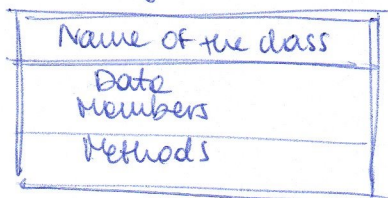 Name of the class
Data
Members
Methods